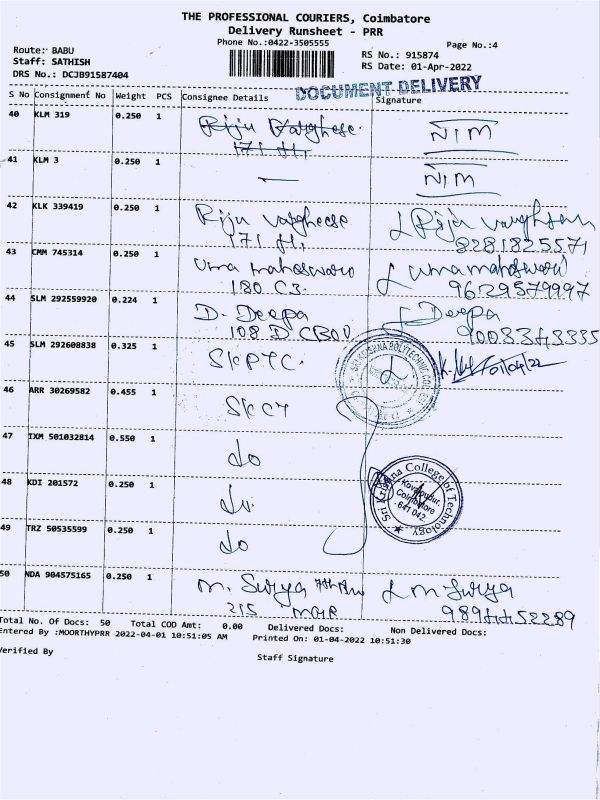 THE PROFESSIONAL COURIERS, Coimbatore
Delivery Runsheet - PRR
Phone No.:0422-3505555
Page No.:4
Route: BABU
Staff: SATHISH
DRS No.: DCJB91587404
RS No.: 915874
RS Date: 01-Apr-2022
DOCUMENT DELIVERY
S No Consignment No Weight PCS Consignee Details Signature
40 KLM 319 0.250 1 Riju Varghese
171 H,
41 KLM 3 0.250 1 —
42 KLK 339419 0.250 1 Riju Varghese
171 H, 8281825571
43 CMM 745314 0.250 1 Uma maheswari Uma maheswari
180 C3. 9629579997
44 SLM 292559920 0.224 1 D. Deepa Deepa
108 D
45 SLM 292608838 0.325 1 SKPTC. 01/04/22
46 ARR 30269582 0.455 1 SKCT
47 IXM 501032814 0.550 1 do
48 KDI 201572 0.250 1 do
49 TRZ 50535599 0.250 1 do
Sri Krishna College of Technology
Kovaipudur,
Coimbatore
641 042
50 NDA 904575165 0.250 1 M. Surya M Surya
215
Total No. Of Docs: 50 Total COD Amt: 0.00 Delivered Docs: Non Delivered Docs:
Entered By :MOORTHYPRR 2022-04-01 10:51:05 AM Printed On: 01-04-2022 10:51:30
Verified By
Staff Signature